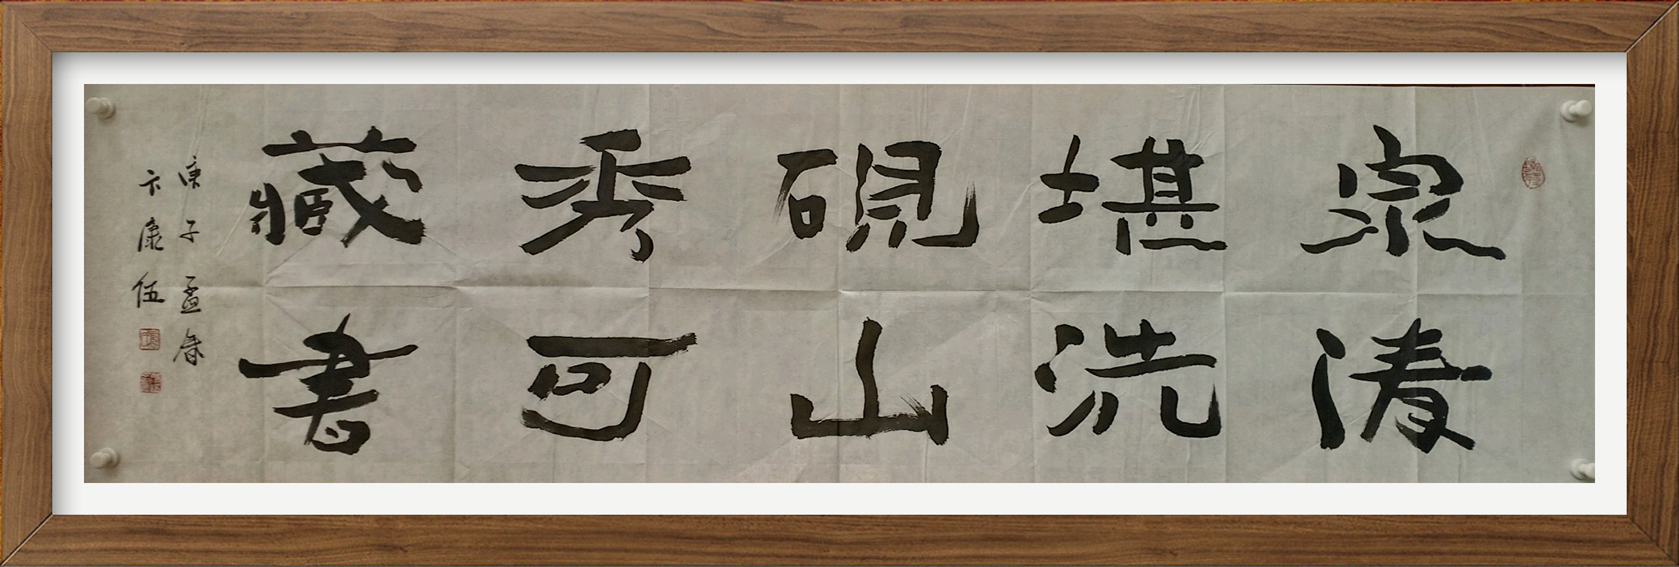 泉清
堪洗
硯山
秀可
藏書
庚子孟春
卞康伍